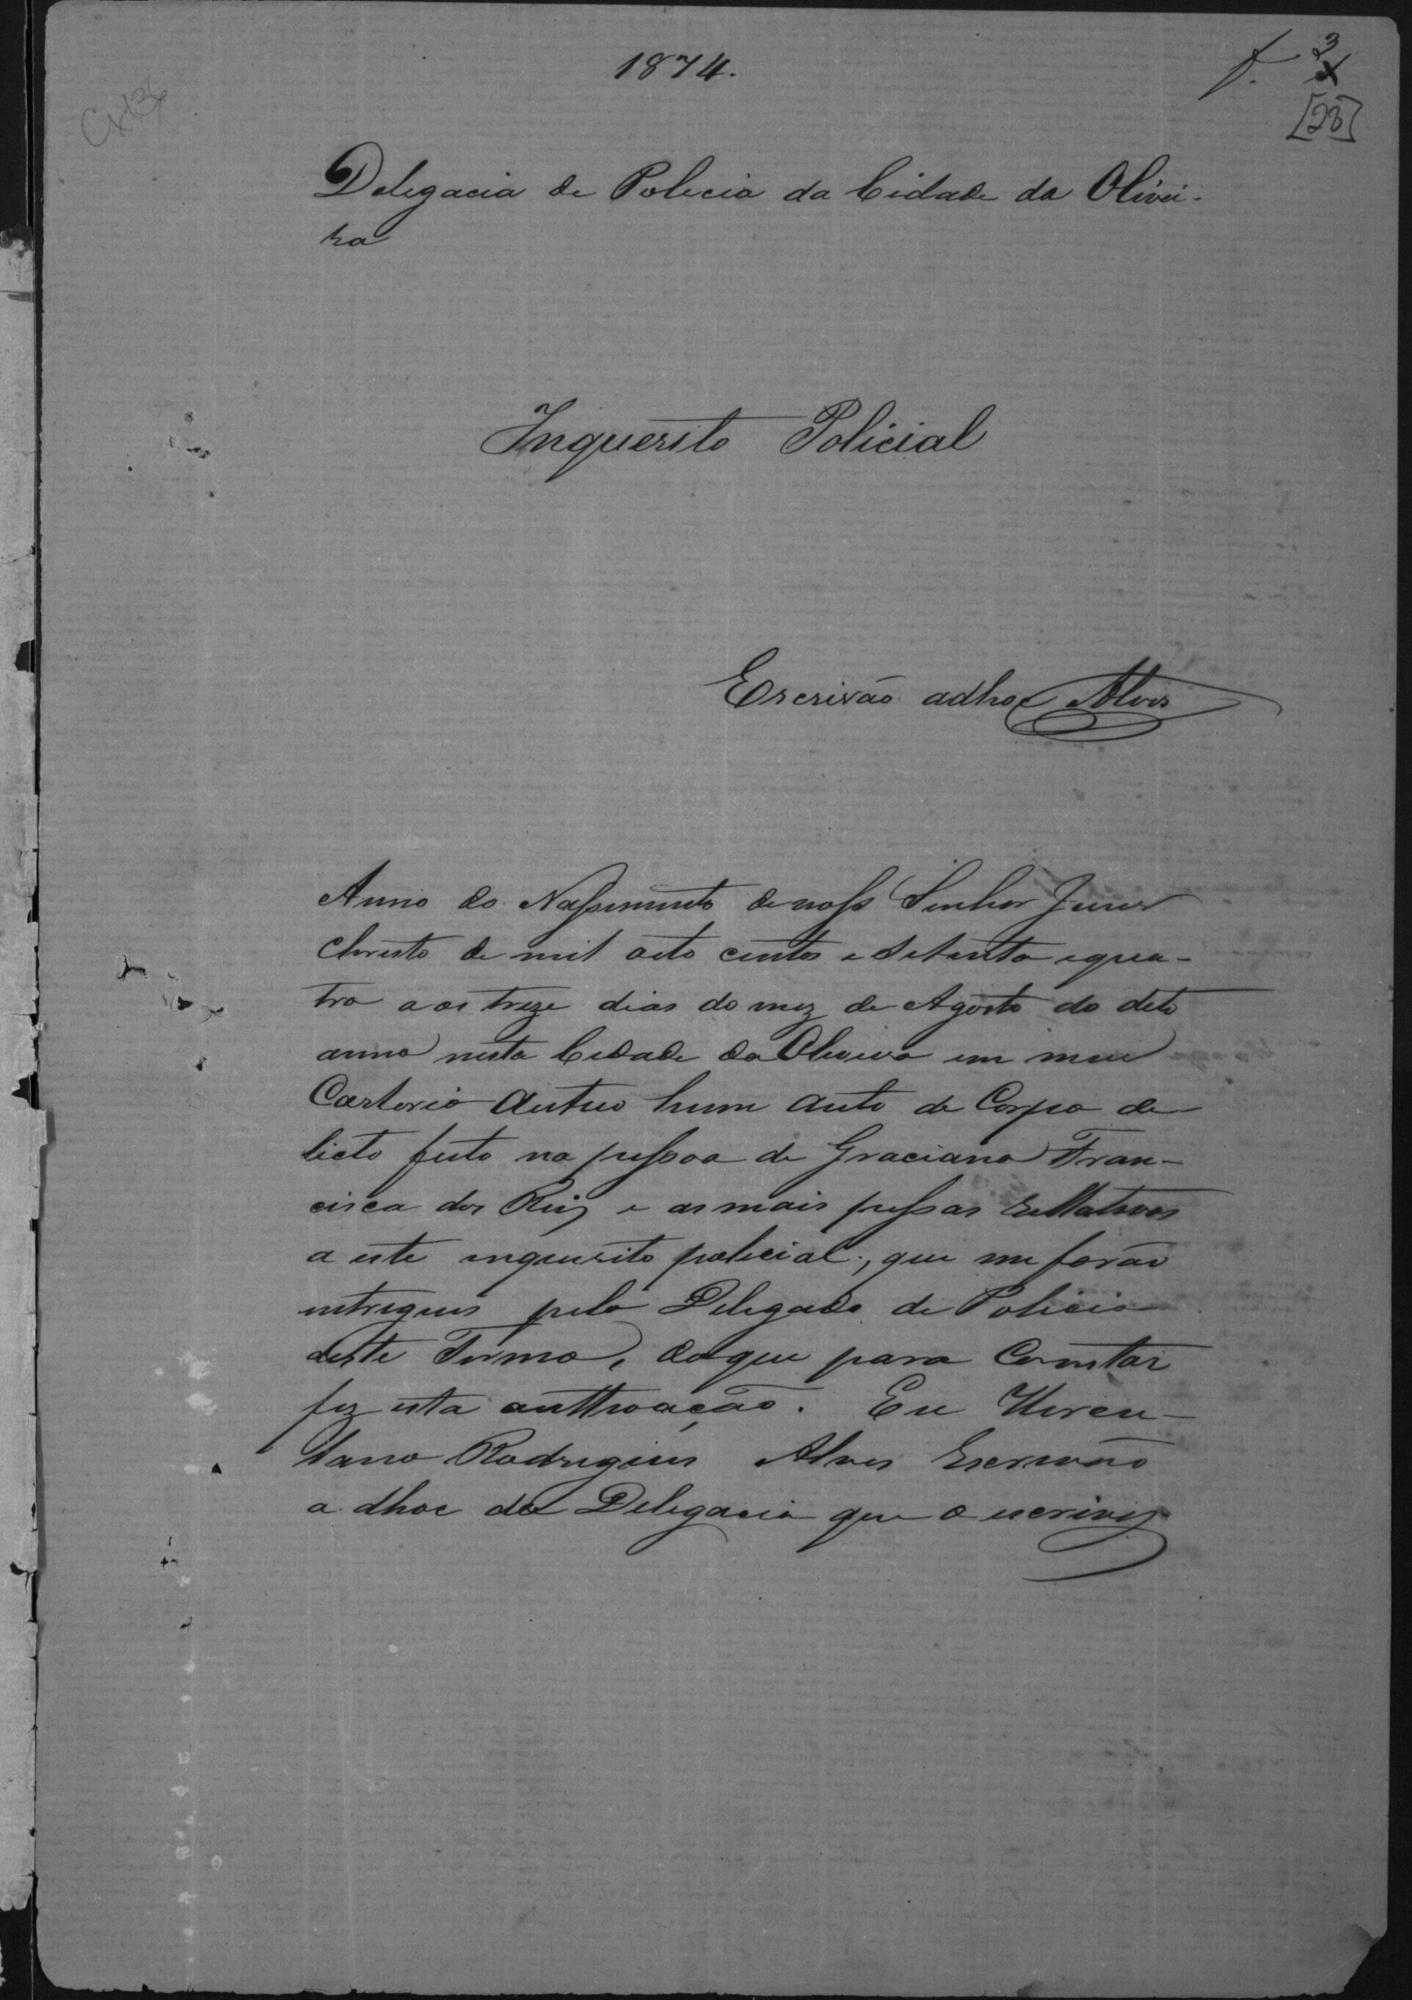 1874.
f. 3
[23]
Delegacia de Policia da Cidade da Olivei-
ra
Inquerito Policial
Escrivão adhoc Alves
Anno do Nassimento de nosso Senhor Jesus
Christo de mil oito centos e setenta e qua-
tro aos treze dias do mez de Agosto do dito
anno nesta Cidade da Oliveira em meu
Cartorio autuo hum auto de Corpo de-
licto feito na pessoa de Graciana Fran-
cisca dos Reis e as mais pessas rellativas
a este inquerito policial, que me forão
entregues pelo Delegado de Policia
deste Termo, do que para Constar
fiz esta authoação. Eu Hercu-
lano Rodrigues Alves Escrivão
a dhoc da Delegacia que o escrivy